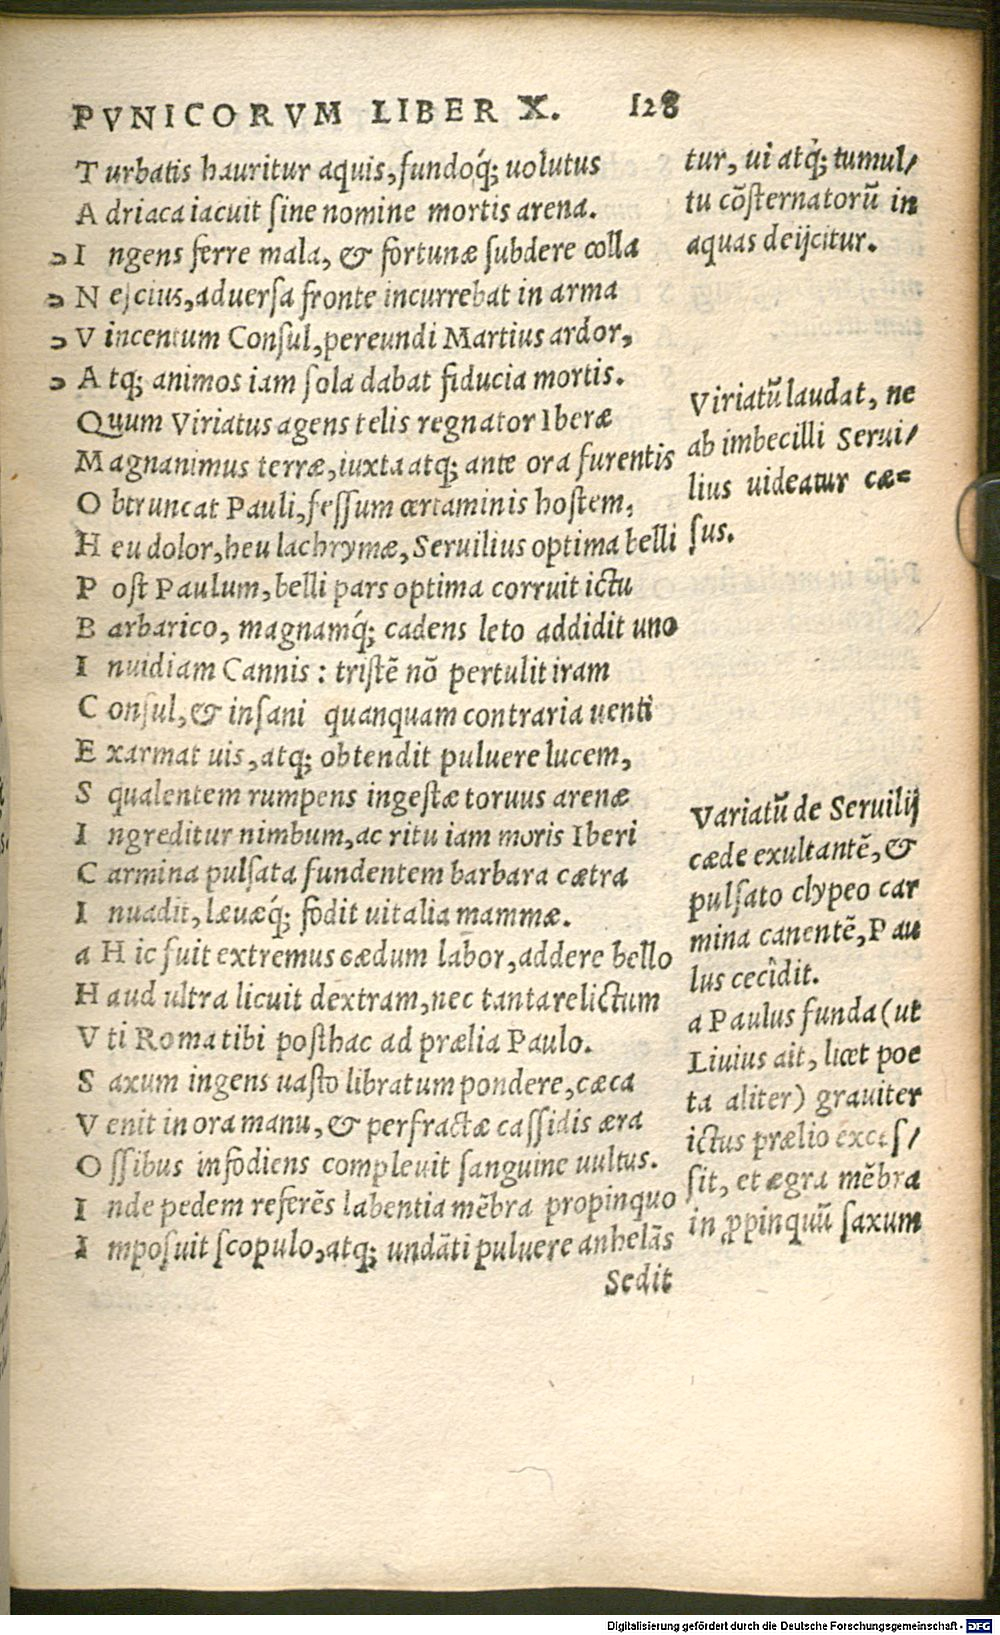 PVNICORVM LIBER X. 128
T urbatis hauritur aquis, fundoq́; uolutus
A driaca iacuit ſine nomine mortis arena.
I ngens ferre mala, & fortunæ ſubdere colla
N eſcius, aduerſa fronte incurrebat in arma
V incentum Conſul, pereundi Martius ardor,
A tq; animos iam ſola dabat fiducia mortis.
Quum Viriatus agens telis regnator Iberæ
M agnanimus terræ, iuxta atq; ante ora furentis
O btruncat Pauli, feſſum certaminis hoſtem,
H eu dolor, heu lachrymæ, Seruilius optima belli
P oſt Paulum, belli pars optima corruit ictu
B arbarico, magnamq́; cadens leto addidit uno
I nuidiam Cannis : triſtē nō pertulit iram
C onſul, & inſani quanquam contraria uenti
E xarmat uis, atq; obtendit puluere lucem,
S qualentem rumpens ingeſtæ toruus arenæ
I ngreditur nimbum, ac ritu iam moris Iberi
C armina pulſata fundentem barbara cætra
I nuadit, læuæq́; fodit uitalia mammæ.
a H ic fuit extremus cædum labor, addere bello
H aud ultra licuit dextram, nec tanta relictum
V ti Roma tibi poſthac ad prælia Paulo.
S axum ingens uaſto libratum pondere, cæca
V enit in ora manu, & perfractæ caſſidis æra
O ſſibus infodiens compleuit ſanguine uultus.
I nde pedem referēs labentia mēbra propinquo
I mpoſuit ſcopulo, atq; undāti puluere anhelās
Sedit
tur, ui atq́; tumul/
tu cōſternatorū in
aquas deijcitur.
Viriatū laudat, ne
ab imbecilli Serui/
lius uideatur cæ=
ſus.
Variatū de Seruilij
cæde exultantē, &
pulſato clypeo car
mina canentē, Pau
lus cecîdit.
a Paulus funda (ut
Liuius ait, licet poe
ta aliter) grauiter
ictus prælio exceſ/
ſit, et ægra mēbra
in ꝓpinquū ſaxum
Digitalisierung gefördert durch die Deutsche Forschungsgemeinschaft - DFG